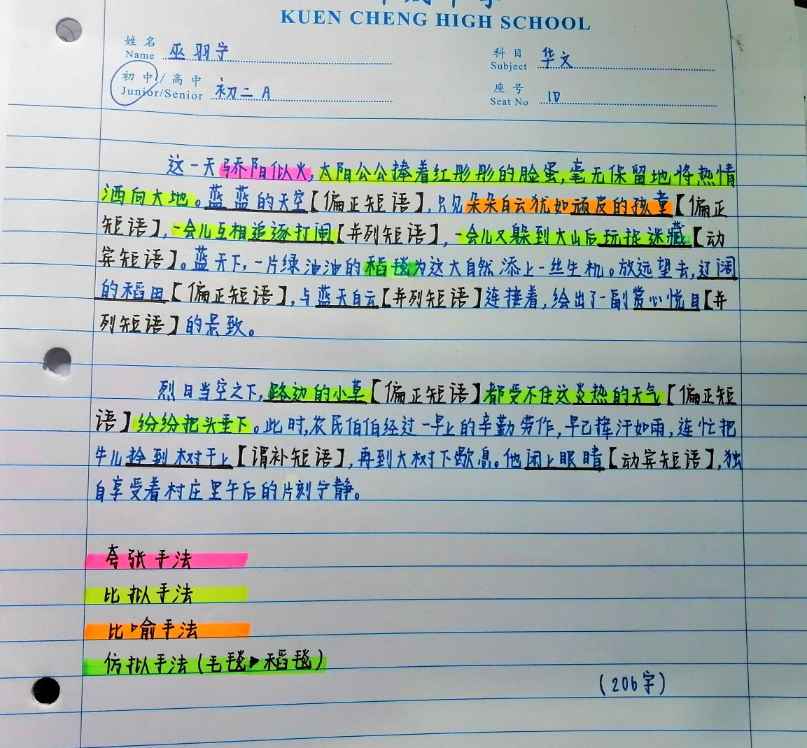 KUEN CHENG HIGH SCHOOL
姓名 Name 巫羽宁 科目 Subject 华文
初中/高中 Junior/Senior 初二A 座号 Seat No 10
这一天骄阳似火,太阳公公捧着红彤彤的脸蛋,毫无保留地将热情
洒向大地。蓝蓝的天空【偏正短语】,只见朵朵白云犹如顽皮的孩童【偏正
短语】,一会儿互相追逐打闹【并列短语】,一会儿又躲到大山后玩捉迷藏【动
宾短语】。蓝天下,一片绿油油的稻毯为这大自然添上一丝生机。放远望去,辽阔
的稻田【偏正短语】,与蓝天白云【并列短语】连接着,绘出了一副赏心悦目【并
列短语】的景致。
烈日当空之下,路边的小草【偏正短语】都受不住这炎热的天气【偏正短
语】纷纷把头垂下。此时,农民伯伯经过一早上的辛勤劳作,早已挥汗如雨,连忙把
牛儿拴到树干上【谓补短语】,再到大树下歇息。他闭上眼睛【动宾短语】,独
自享受着村庄里午后的片刻宁静。
夸张手法
比拟手法
比喻手法
仿拟手法(毛毯▶稻毯)
(206字)